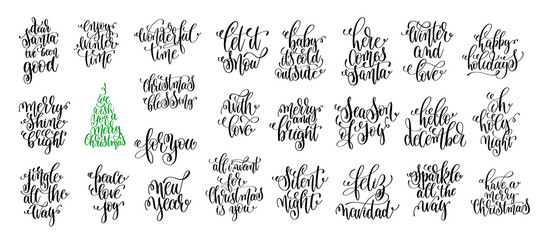 dear
Santa
i've been
good
enjoy
winter
time
wonderful
time
let it
snow
baby
it's cold
outside
here
comes
Santa
winter
and
love
happy
holidays
merry
shine
bright
we
wish
you a
merry
Christmas
Christmas
blessing
for you
with
love
merry
and
bright
season
of joy
hello
december
oh
holy
night
jingle
all the
way
peace
love
joy
new
year
all i want
for
Christmas
is you
Silent
night
feliz
navidad
sparkle
all the
way
have a
merry
Christmas